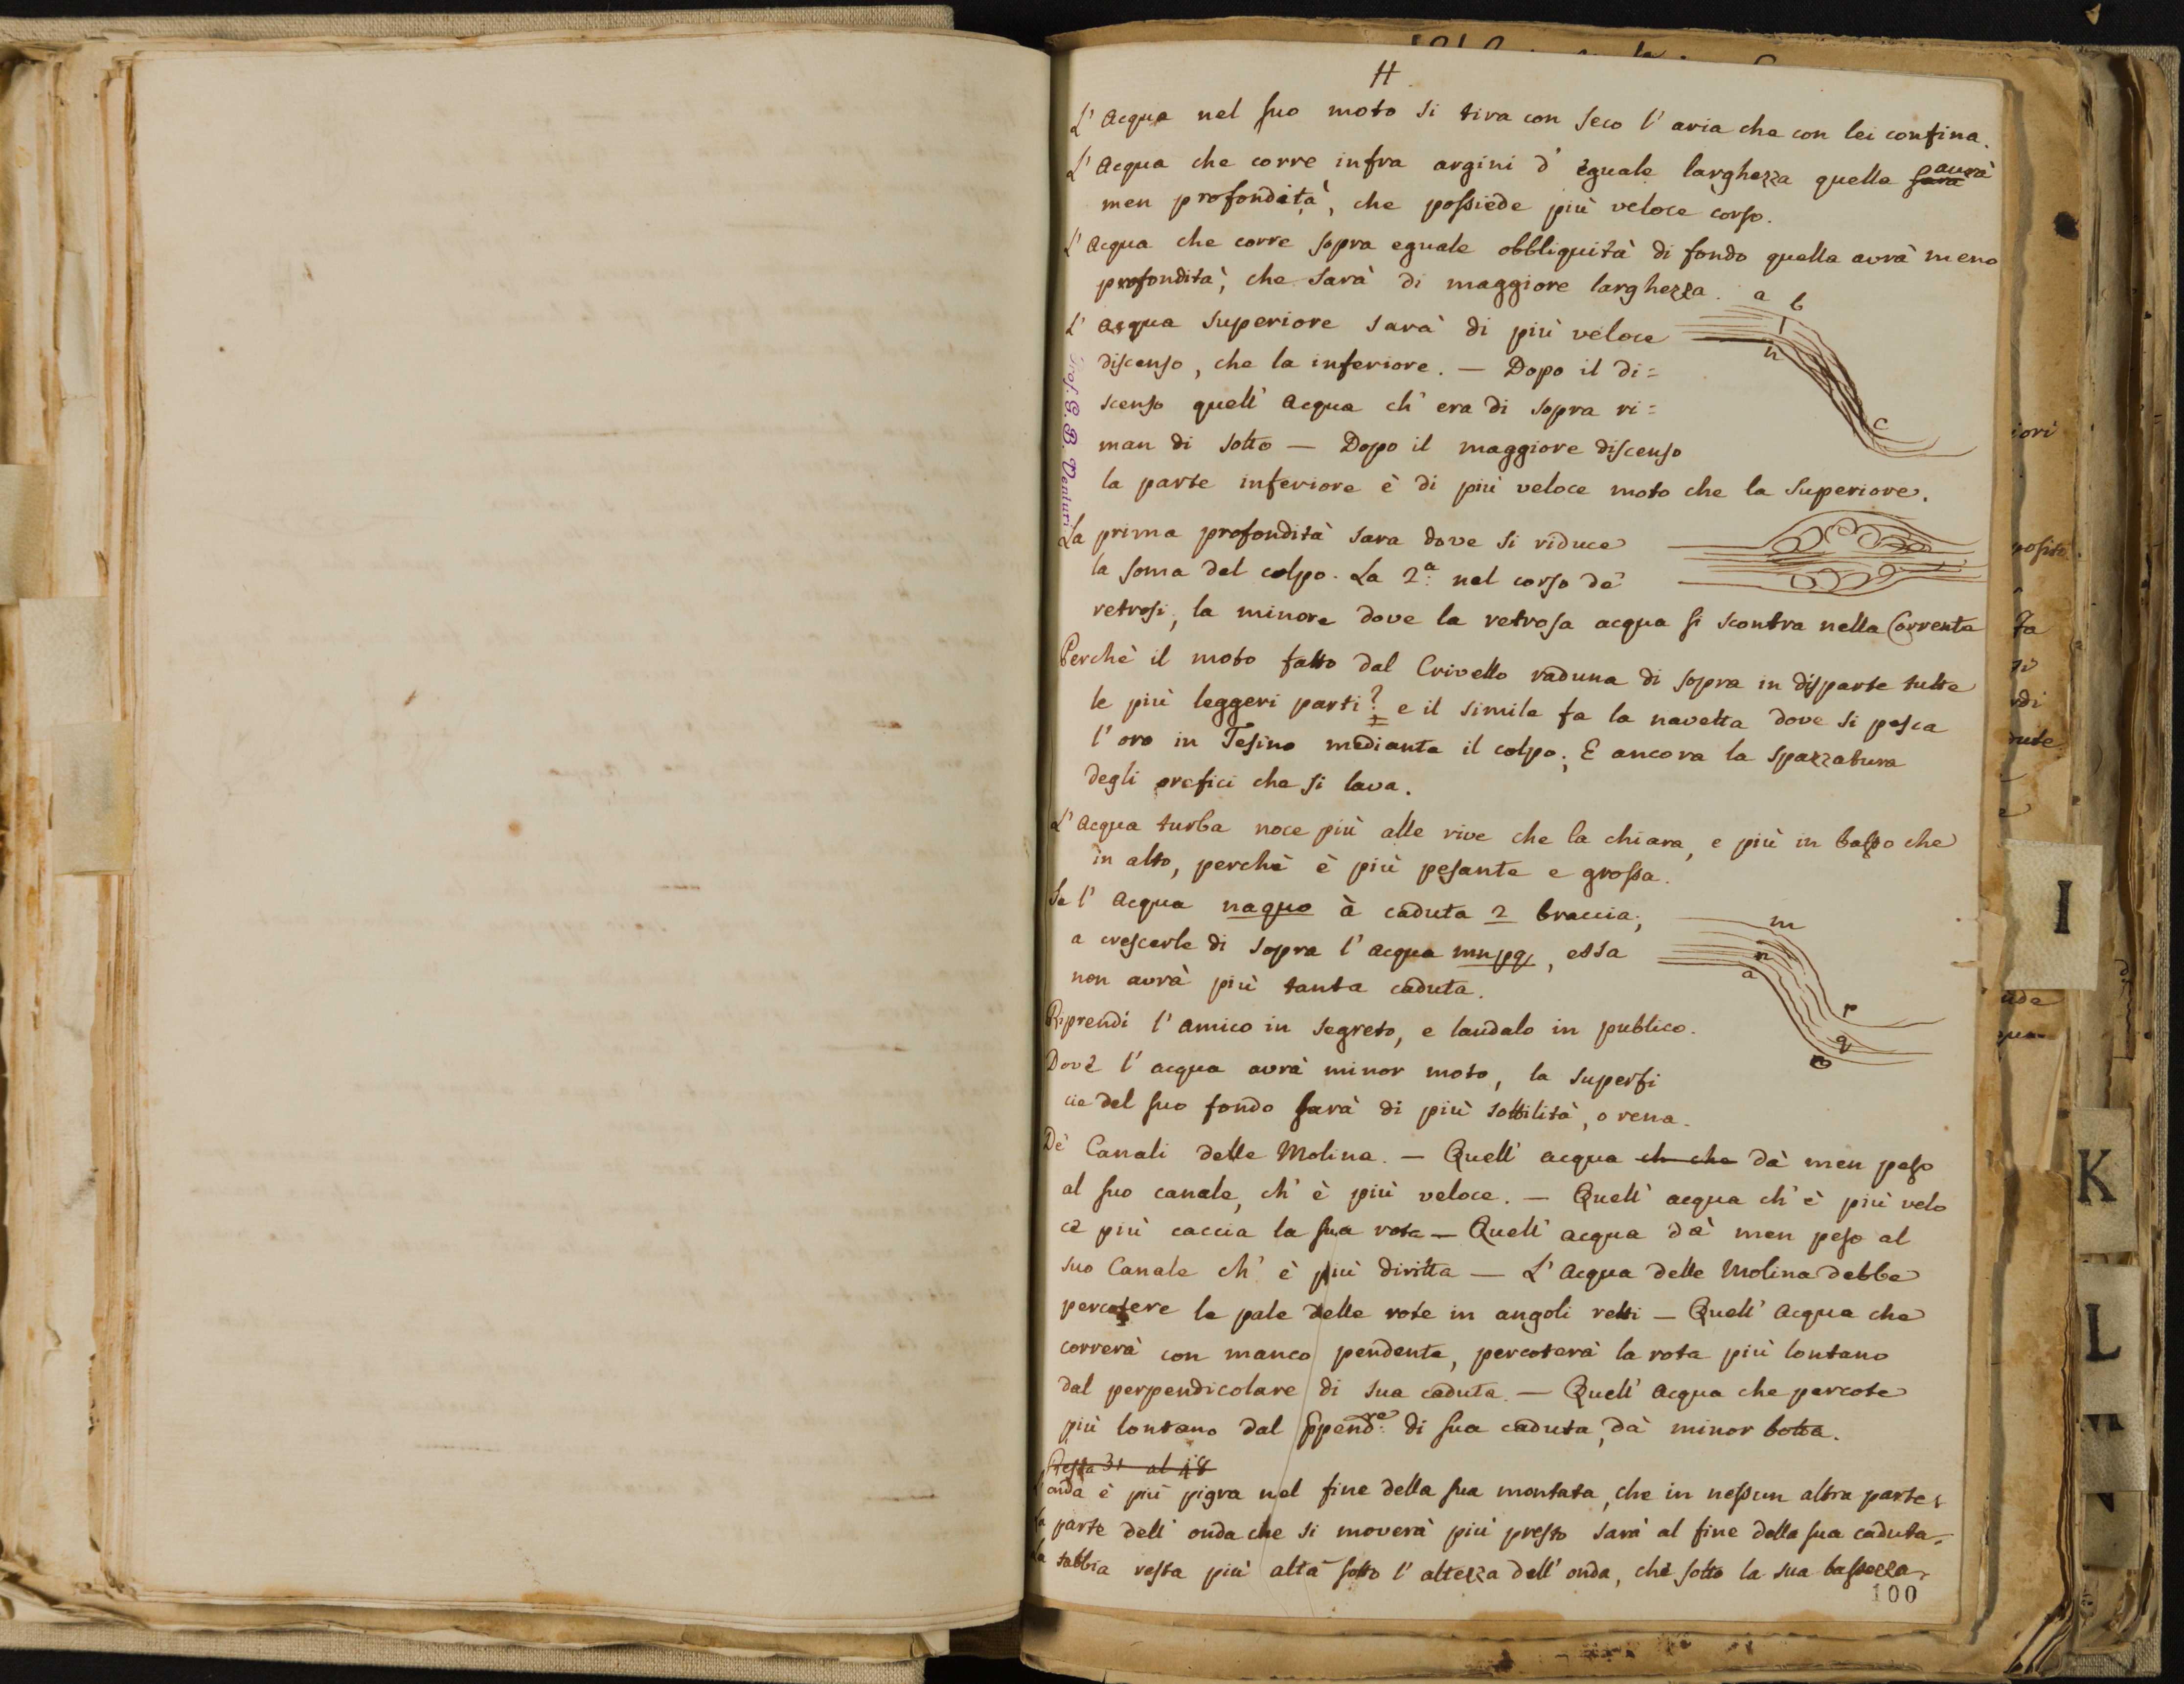 H
L' Acqua nel suo moto si tira con seco l' aria che con lei confina.
L' Acqua che corre infra argini d' eguale larghezza quella sarà avrà
men profondità, che possiede più veloce corso.
L' Acqua che corre sopra eguale obbliquità di fondo quella avrà meno
profondità, che sarà di maggiore larghezza.
a b
n
c
L' Acqua superiore sarà di più veloce
discenso, che la inferiore. — Dopo il di=
scenso quell' Acqua ch' era di sopra ri=
man di sotto — Dopo il maggiore discenso
la parte inferiore è di più veloce moto che la superiore.
Prof. G. B. Venturi
La prima profondità sara dove si riduce
la soma del colpo. La 2.a nel corso de'
retrosi, la minore dove la retrosa acqua si scontra nella Corrente
Perchè il moto fatto dal Crivello raduna di sopra in disparte tutte
le più leggeri parti? e il simile fa la navetta dove si pesca
l' oro in Tesino mediante il colpo; E ancora la spazzatura
degli orefici che si lava.
L' Acqua turba noce più alle rive che la chiara, e più in basso che
in alto, perchè è più pesante e grossa.
Se l' Acqua naquo à caduta 2 braccia;
a crescerle di sopra l' acqua mnpq, essa
non avrà più tanta caduta.
m
n
a
p
q
o
Riprendi l' amico in segreto, e laudalo in publico.
Dove l' acqua avrà minor moto, la superfi
cie del suo fondo sarà di più sottilità, o rena.
De' Canali delle Molina. — Quell' acqua ch che dà men peso
al suo canale, ch' è più veloce. — Quell' acqua ch' è più velo
ce più caccia la sua rota — Quell' acqua dà men peso al
suo Canale ch' è più diritta — L' Acqua delle Molina debbe
percotere le pale delle rote in angoli retti — Quell' Acqua che
correrà con manco pendente, percoterà la rota più lontano
dal perpendicolare di sua caduta — Quell' Acqua che percote
più lontano dal ppend.re di sua caduta, dà minor botta.
Resta 31 al 48
L' onda è più pigra nel fine della sua montata, che in nessun altra parte.
La parte dell' onda che si moverà più presto sarà al fine della sua caduta.
La sabbia resta più alta sotto l' altezza dell' onda, che sotto la sua bassezza.
100
I
K
L